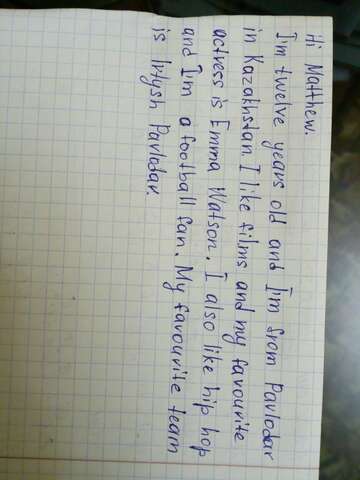 Hi Matthew.
I'm twelve years old and I'm from Pavlodar
in Kazakhstan. I like films and my favourite
actress is Emma Watson. I also like hip hop
and I'm a football fan. My favourite team
is Irtysh Pavlodar.